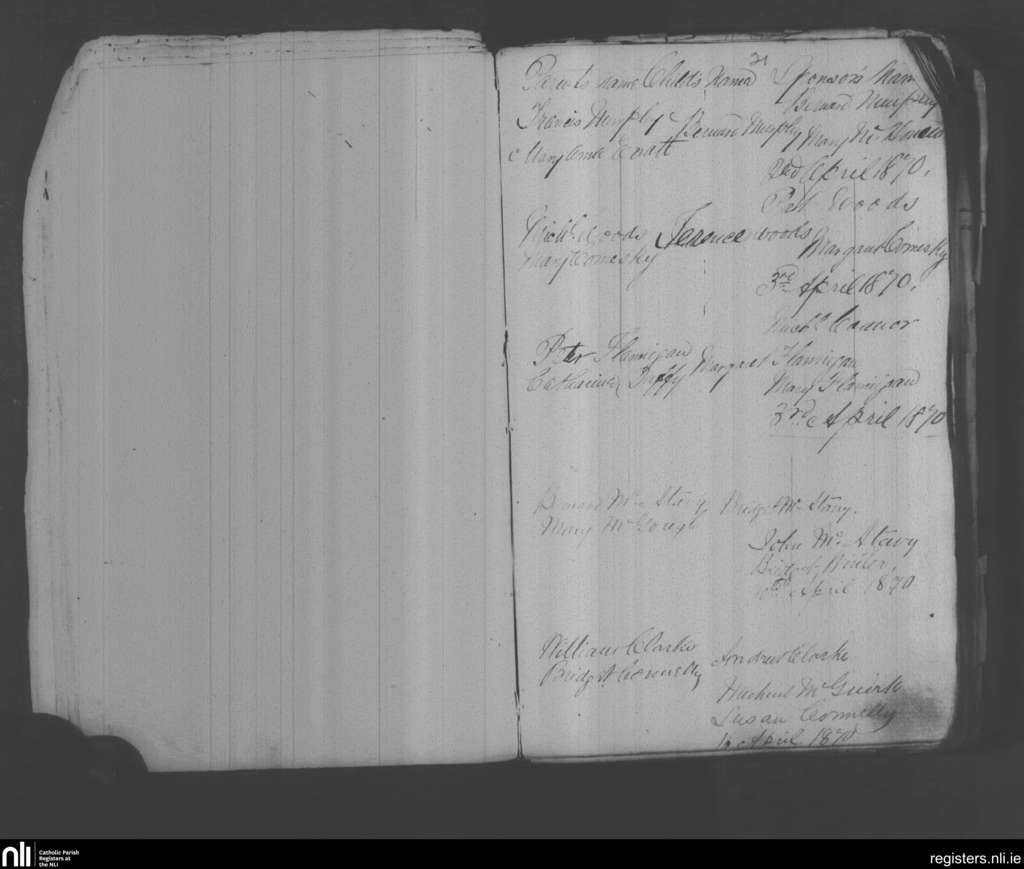 21
Parents name Childs Name Sponsors Nam
Bernard Murphy
Francis Murphy Bernard Murphy Mary McDonald
Mary Anne
2nd April 1870.
Pat Woods
Michl Woods Terence Woods
Mary Comesky Margaret Comesky
3rd April 1870.
Michl Connor
Peter Flannigan Margret Flannigan
Catharine Duffy Mary Flannigan
3rd April 1870
Bernard Mc Stavy Bridget Mc Stavy.
Mary Mc
John Mc Stavy
Bridget
10th April 1870
William Clarke Andrew Clarke
Bridget Connelly
Michael McGuirk
Susan Connelly
April 1870
nli Catholic Parish
Registers at
the NLI
registers.nli.ie